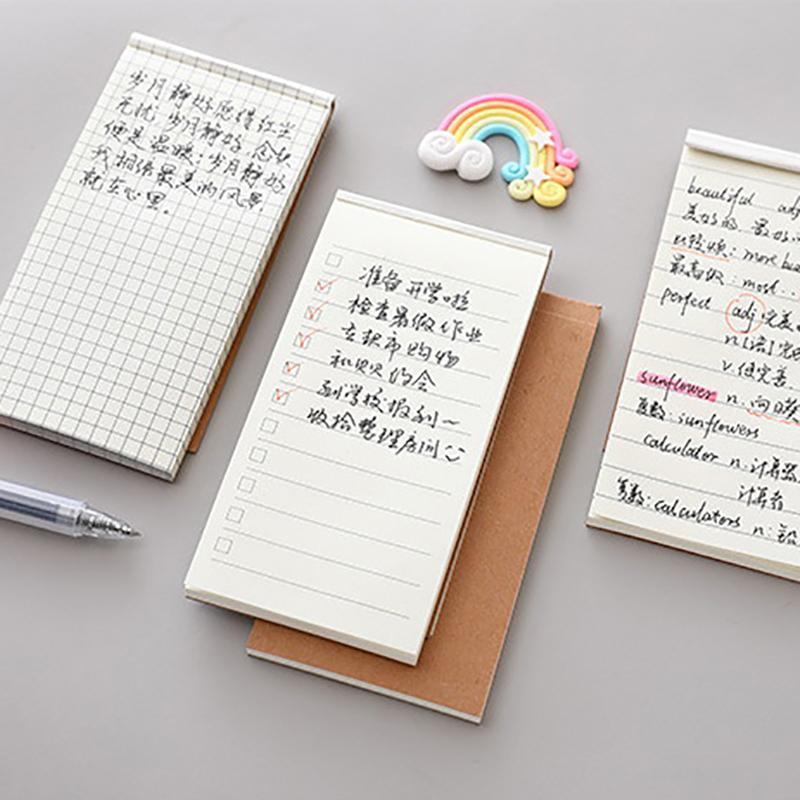 岁月静好愿得红尘
无忧,岁月静好,念起
便是温暖;岁月静好
我相信最美的风景
就在心里。
准备开学啦
检查暑假作业
去超市购物
和贝贝约会
到学校报到~
收拾整理房间
beautiful adj
美好的 最好
比较级: more bea
最高级: most..
perfect adj 完美
n.[语]完
v. 使完善
sunflower n. 向日葵
复数: sunflowers
calculator n. 计算器
计算者
复数: calculators n: